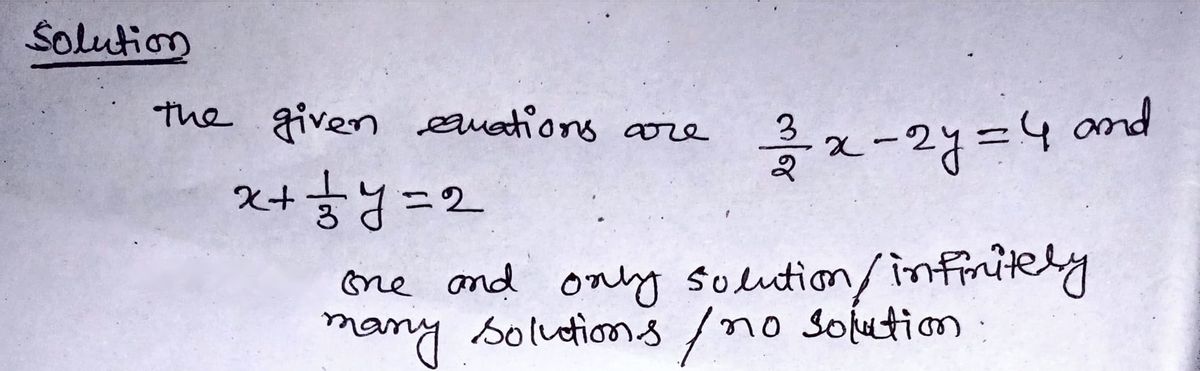 Solution
the given equations are 3/2 x - 2y = 4 and
x + 1/3 y = 2
one and only solution / infinitely
many solutions / no solution.